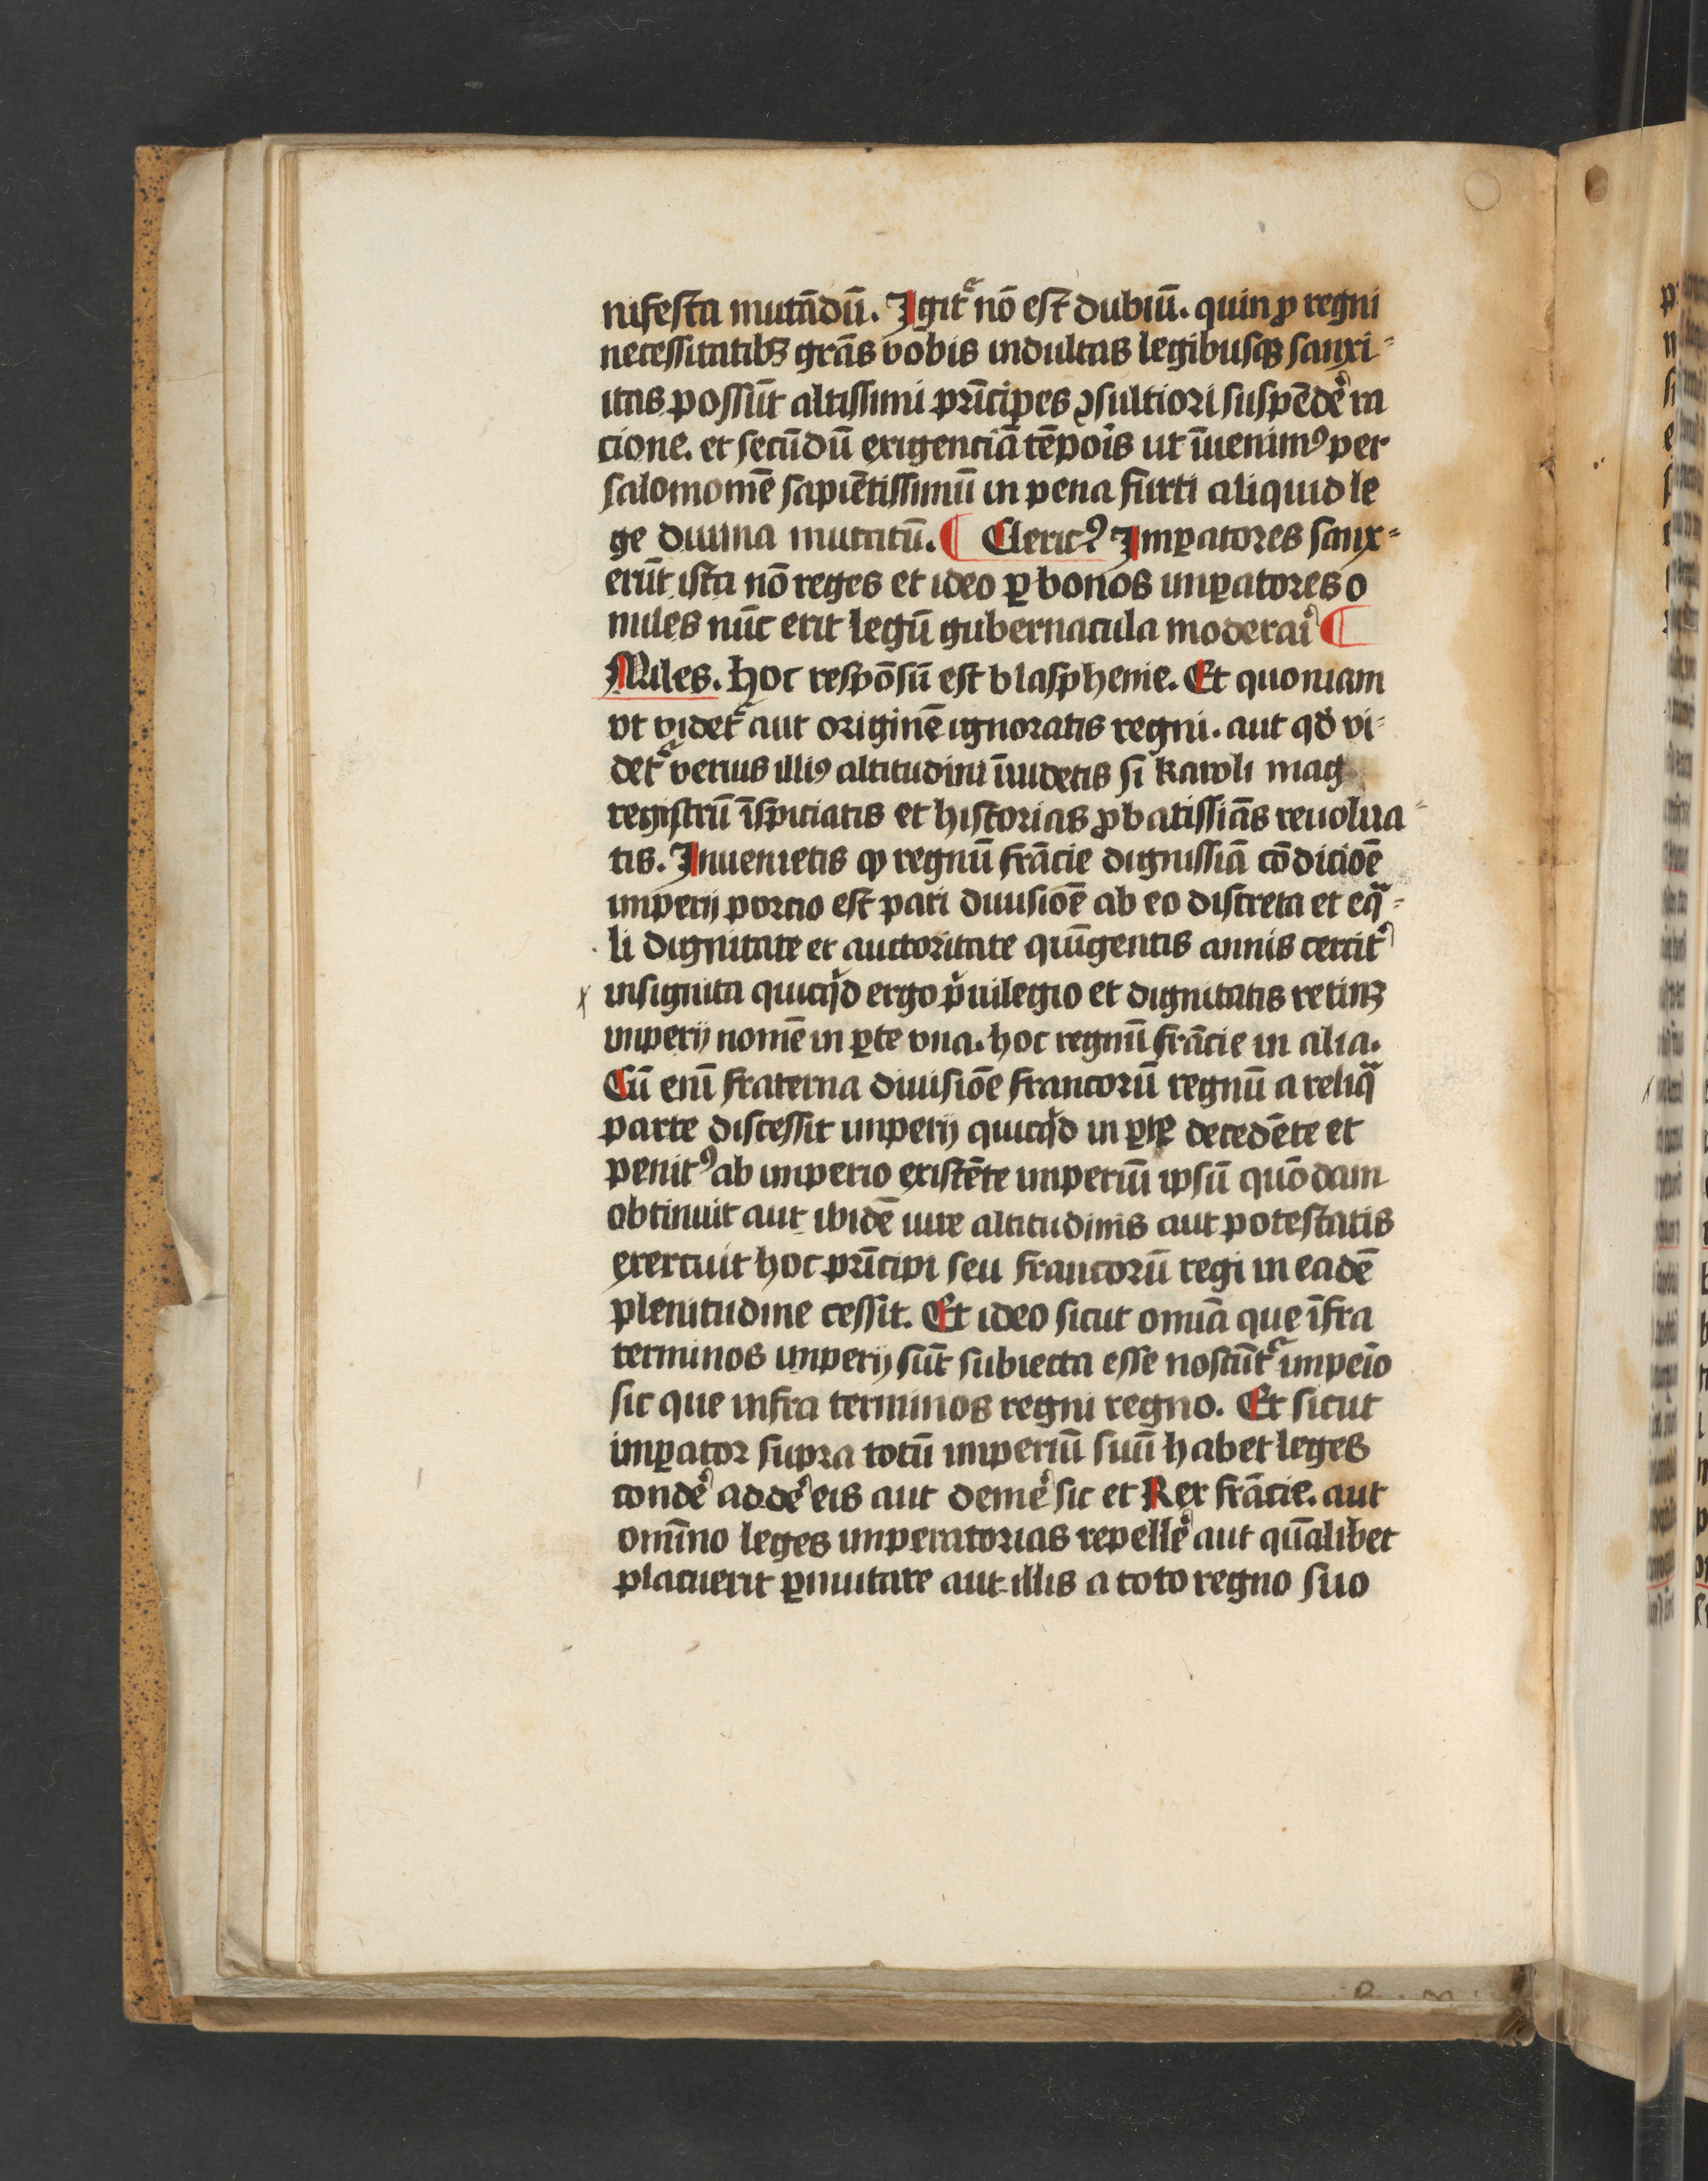 nifesta mutādū. Igitᷣ nō est dubiū. quin ꝓ regni
necessitatibꝫ grās vobis indultas legibusqꝫ sanxi⸗
itas possūt altissimi prīcipes ꝯsultiori suspēdeˀ ra
cione. et secūdū exigenciā tēpoīs ut īuenimꝰ per
salomonē sapiētissimū in pena furti aliquid le
ge diuina mutatū. ¶ Clericꝰ Imꝑatores sanx⸗
erūt ista nō reges et ideo ꝑ bonos imꝑatores o
miles nūc erit legū gubernacula moderaiˀ ¶
Miles. hoc respōsū est blasphemie. Et quoniam
vt videtᷣ aut originē ignoratis regni. aut qđ vi⸗
detᷣ verius illiꝰ altitudini īuidetis si karoli mag
registrū īspiciatis et historias ꝓbatissiās reuolua⸗
tis. Inuenietis ꝙ regnū frācie dignissiā cōdicioē
imperij porcio est pari diuisioē ab eo discreta et eqᷓ⸗
li dignitate et auctoritate quīgentis annis circitˀ
insignita quicqͥd ergo pͥuilegio et dignitatis retinꝫ
imperij nomē in ꝑte vna. hoc regnū frācie in alia.
Cū enī fraterna diuisiōe francorū regnū a reliqᷓ
parte discessit imperij quicqͥd in ꝑte decedēte et
penitꝰ ab imperio existēte imperiū ipsū quōdam
obtinuit aut ibidē iure altitudinis aut potestatis
exercuit hoc prīcipi seu francorū regi in eadē
plenitudine cessit. Et ideo sicut omīa que īfra
terminos imperij sūt subiecta esse noscūtᷣ impeīo
sic que infra terminos regni regno. Et sicut
imꝑator supra totū imperiū suū habet leges
condeˀ addeˀ eis aut demeˀ sic et Rex frācie. aut
omīno leges imperatorias repelleˀ aut qūalibet
placuerit ꝑmutare aut illis a toto regno suo